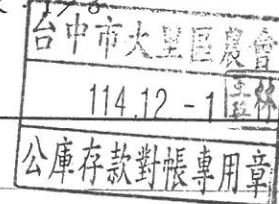 台中市大里區農會
114.12-1
公庫存款對帳專用章